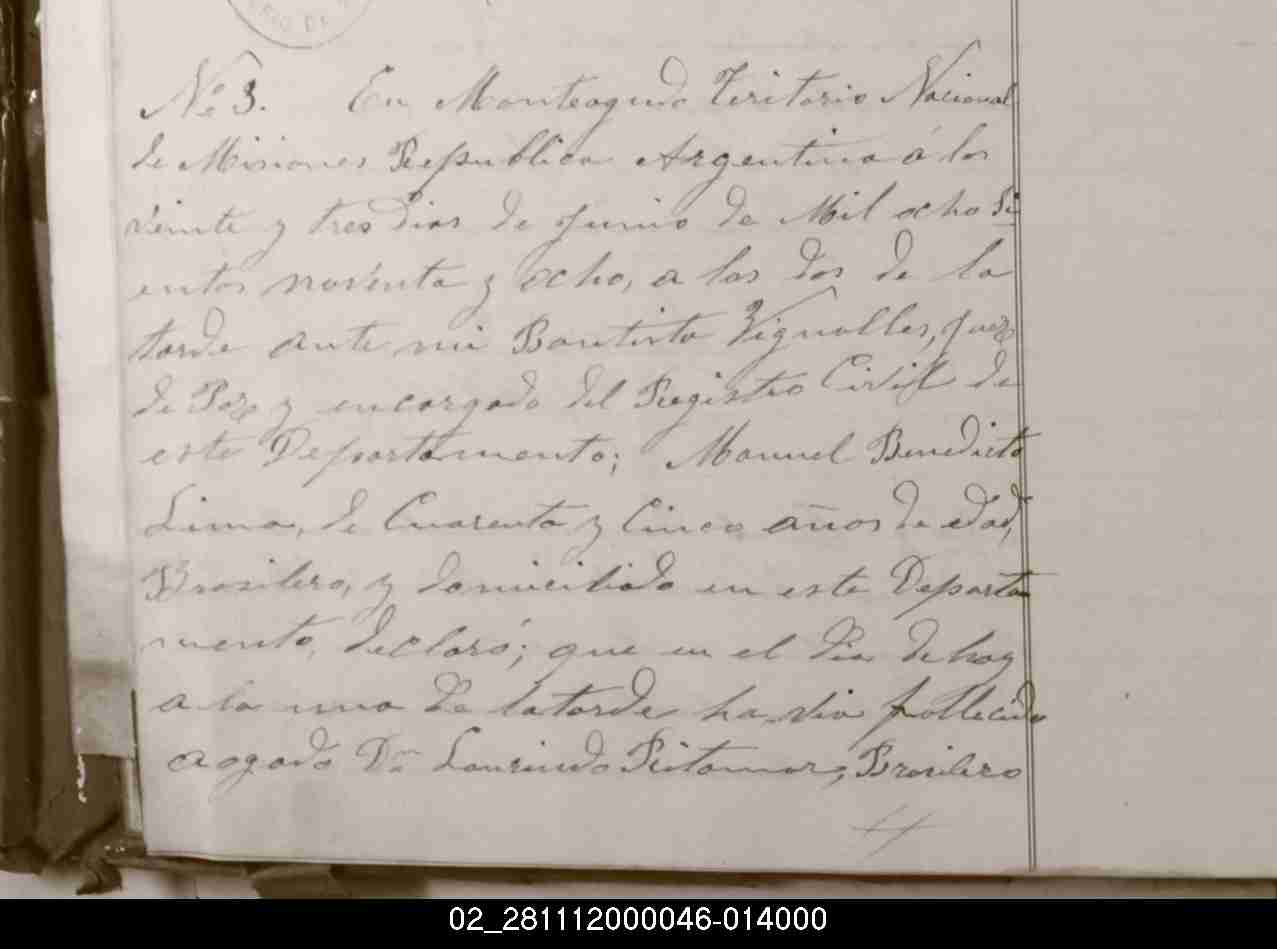 RIO DE
No 3. En Monteagudo Teritorio Nacional
de Misiones Republica Argentina á los
veinte y tres dias de Junio de Mil ocho si
entos novénta y ocho, a las dos de la
tarde ante mi Bautista Vignolles, Juez
de Paz y encargado del Registro Civil de
este Departamento; Manuel Benedicto
Lima, de Cuarenta y Cinco años de edad,
Brasilero, y domiciliado en este Departa
mento, declaró; que en el dia de hoy
a la una de la tarde havia fallecido
aogado Dn Laurindo Brasilero
02_281112000046-014000